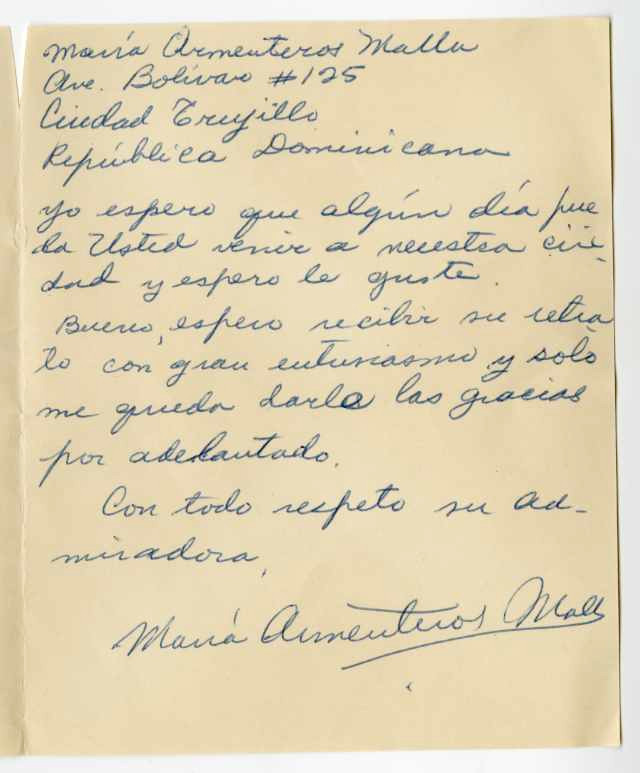 María Armenteros Malla
Ave. Bolívar #125
Ciudad Trujillo
República Dominicana
Yo espero que algún día pue
da Usted venir a nuestra ciu-
dad y espero le guste.
Bueno, espero recibir su retra
to con gran entusiasmo y solo
me queda darle las gracias
por adelantado.
Con todo respeto su ad-
miradora,
María Armenteros Malla